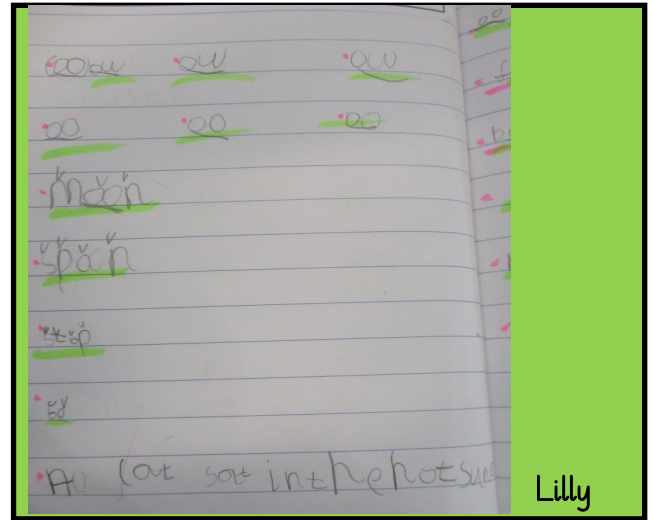 ow ow ow
oo oo oo
moon
spoon
stop
A cat sat in the hot sun
Lilly